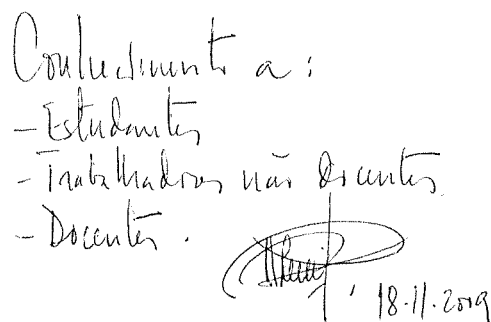 Conhecimento a:
- Estudantes
- Trabalhadores não docentes
- Docentes.
18.11.2019